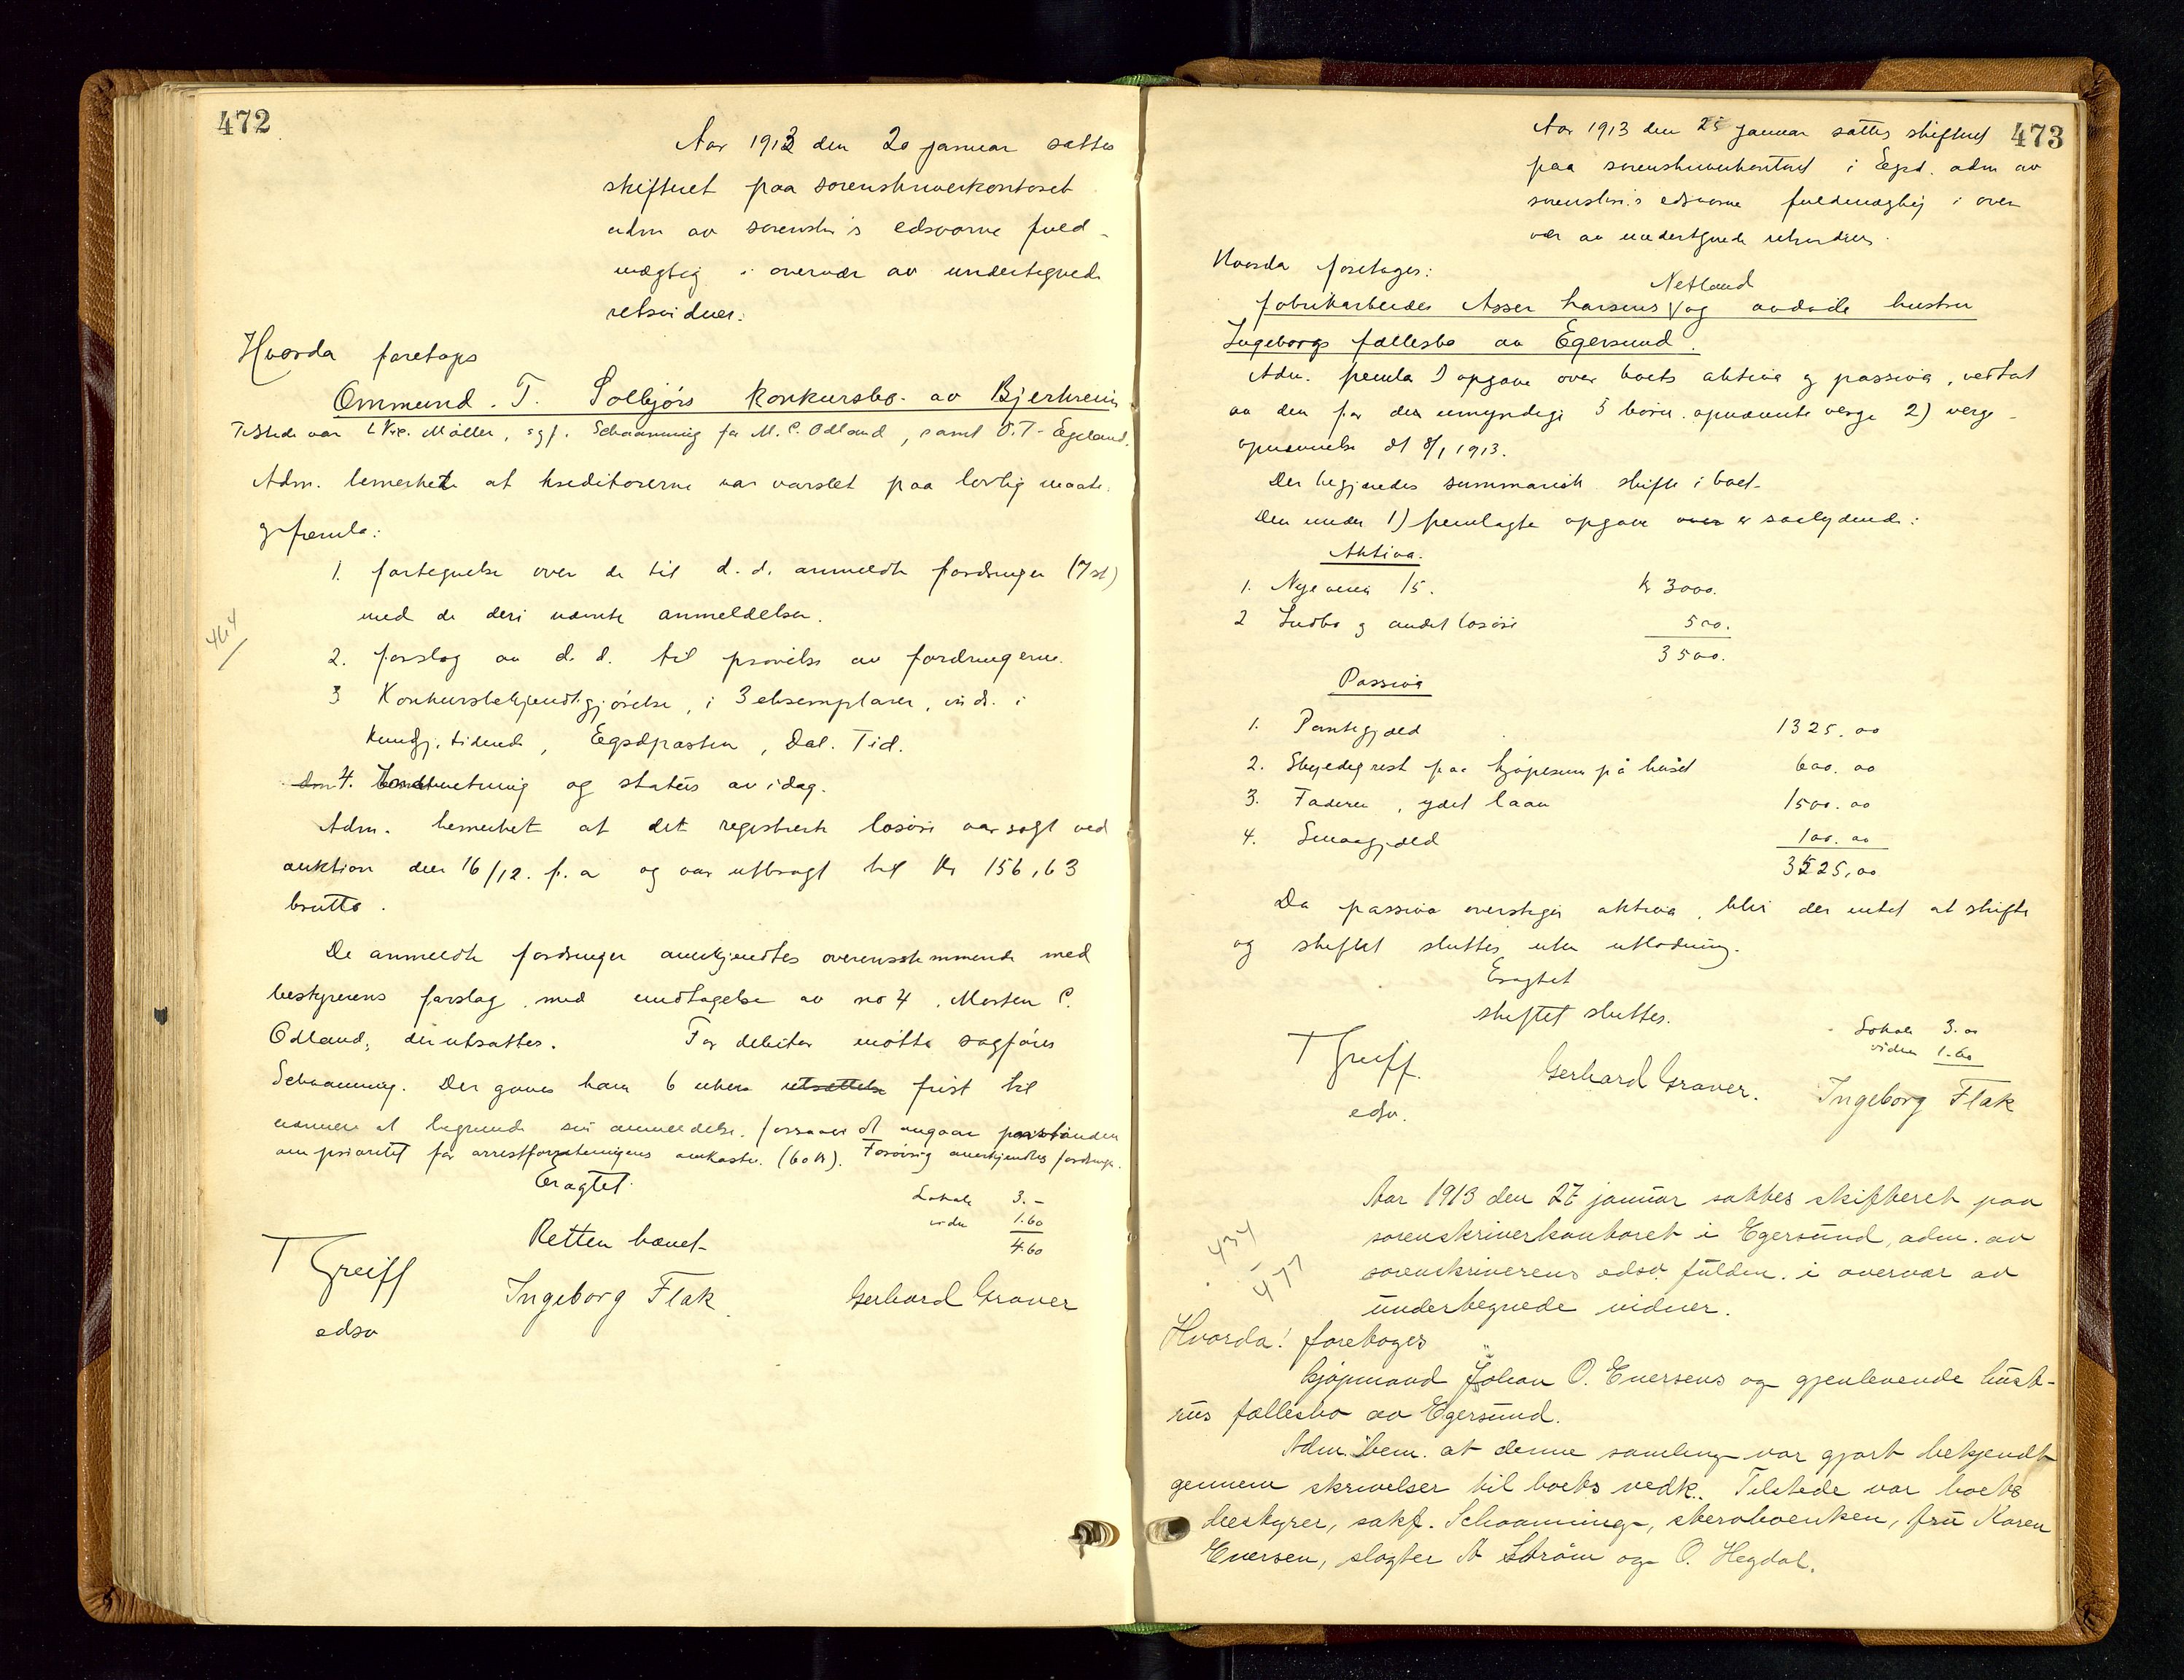 472
Aar 1913 den 20 januar sattes
skifteret paa sorenskriverkontoret
adm av sorenskr's edsvorne fuld-
mægtig i overvær av undertegnede
retsvidner:
Hvorda foretoges
Ommund T. Solbjörs konkursbo av Bjerkreim
Tilstede var Møller, sgf. Schaanning for M. C. Odland, samt O. T. Egeland.
Adm. bemerkete at kreditorerne var varslet paa lovlig maate.
og fremla:
1. fortegnelse over de til d. d. anmeldte fordringer (7 st)
med de deri nævnte anmeldelser.
464
2. forslag av d. d. til prøvelse av fordringerne.
3 Konkursbekjendtgjørelse, i 3 eksemplarer, inds. i
Kundgj. tidende, Egsdposten, Dal. Tid.
4. og status av idag.
Adm. bemerket at det registrerte løsøre var solgt ved
auktion den 16/12. f. a og var utbragt til Kr 156,63
brutto.
De anmeldte fordringer anerkjendtes overensstemmende med
bestyrerens forslag med undtagelse av no 4, Morten C.
Odland, der utsattes. For debitor møtte sagfører
Schaanning. Der gaves ham 6 ukers utsættelse frist til
nærmere at begrunde sin anmeldelse, forsaavidt angaar paastanden
om prioritet for arrestforretningens omkostn. (60 kr). Forøvrig anerkjendtes fordringen.
Eragtet:
Retten hævet
Lokale 3.-
vidn 1.60
4.60
T Greiff
edsv
Ingeborg Flak
Gerhard Graver
473
Aar 1913 den 25 januar sattes skifteret
paa sorenskriverkontoret i Egsd. adm av
sorenskr.s edsvorne fuldmægtig i over
vær av undertegnede retsvidner.
Hvorda foretoges:
Netland
fabrikarbeider Asser Larsens og avdøde hustru
Ingeborgs fællesbo av Egersund.
Adm. fremla 1) opgave over boets aktiva og passiva, vedtat
av den for de umyndige 5 børn opnævnte verge 2) verge-
opnævnelse dt 8/1 1913.
Der begjæredes summarisk skifte i boet.
Den under 1) fremlagte opgave over er saalydende:
Aktiva.
1. 15. kr 3000.
2 Indbo og andet løsøre 500.
3500.
Passiva
1. Pantegjæld 1325.00
2. Skyldig rest paa kjøpesum på huset 600.00
3. Faderen, ydet laan 1500.00
4. Smaagjæld 100.00
3525,00
Da passiva overstiger aktiva, blir der intet at skifte
og skiftet sluttes uten utlodning.
Eragtet
skiftet sluttes.
Lokale 3.00
vidner 1.60
T Greiff.
edsv.
Gerhard Graver.
Ingeborg Flak
Aar 1913 den 27 januar sattes skifteret paa
sorenskriverkontoret i Egersund, adm. av
sorenskriverens edsv. fuldm. i overvær av
undertegnede vidner.
434
477
Hvorda! foretoges
kjøpmand Johan O. Eversens og gjenlevende hust-
rus fællesbo av Egersund.
Adm. bem. at denne samling var gjort bekjendt
gennem skrivelser til boets vedk. Tilstede var boets
bestyrer, sakf. Schaanning, sterboenken, fru Karen
Eversen, slagter A Strøm og O. Hegdal.